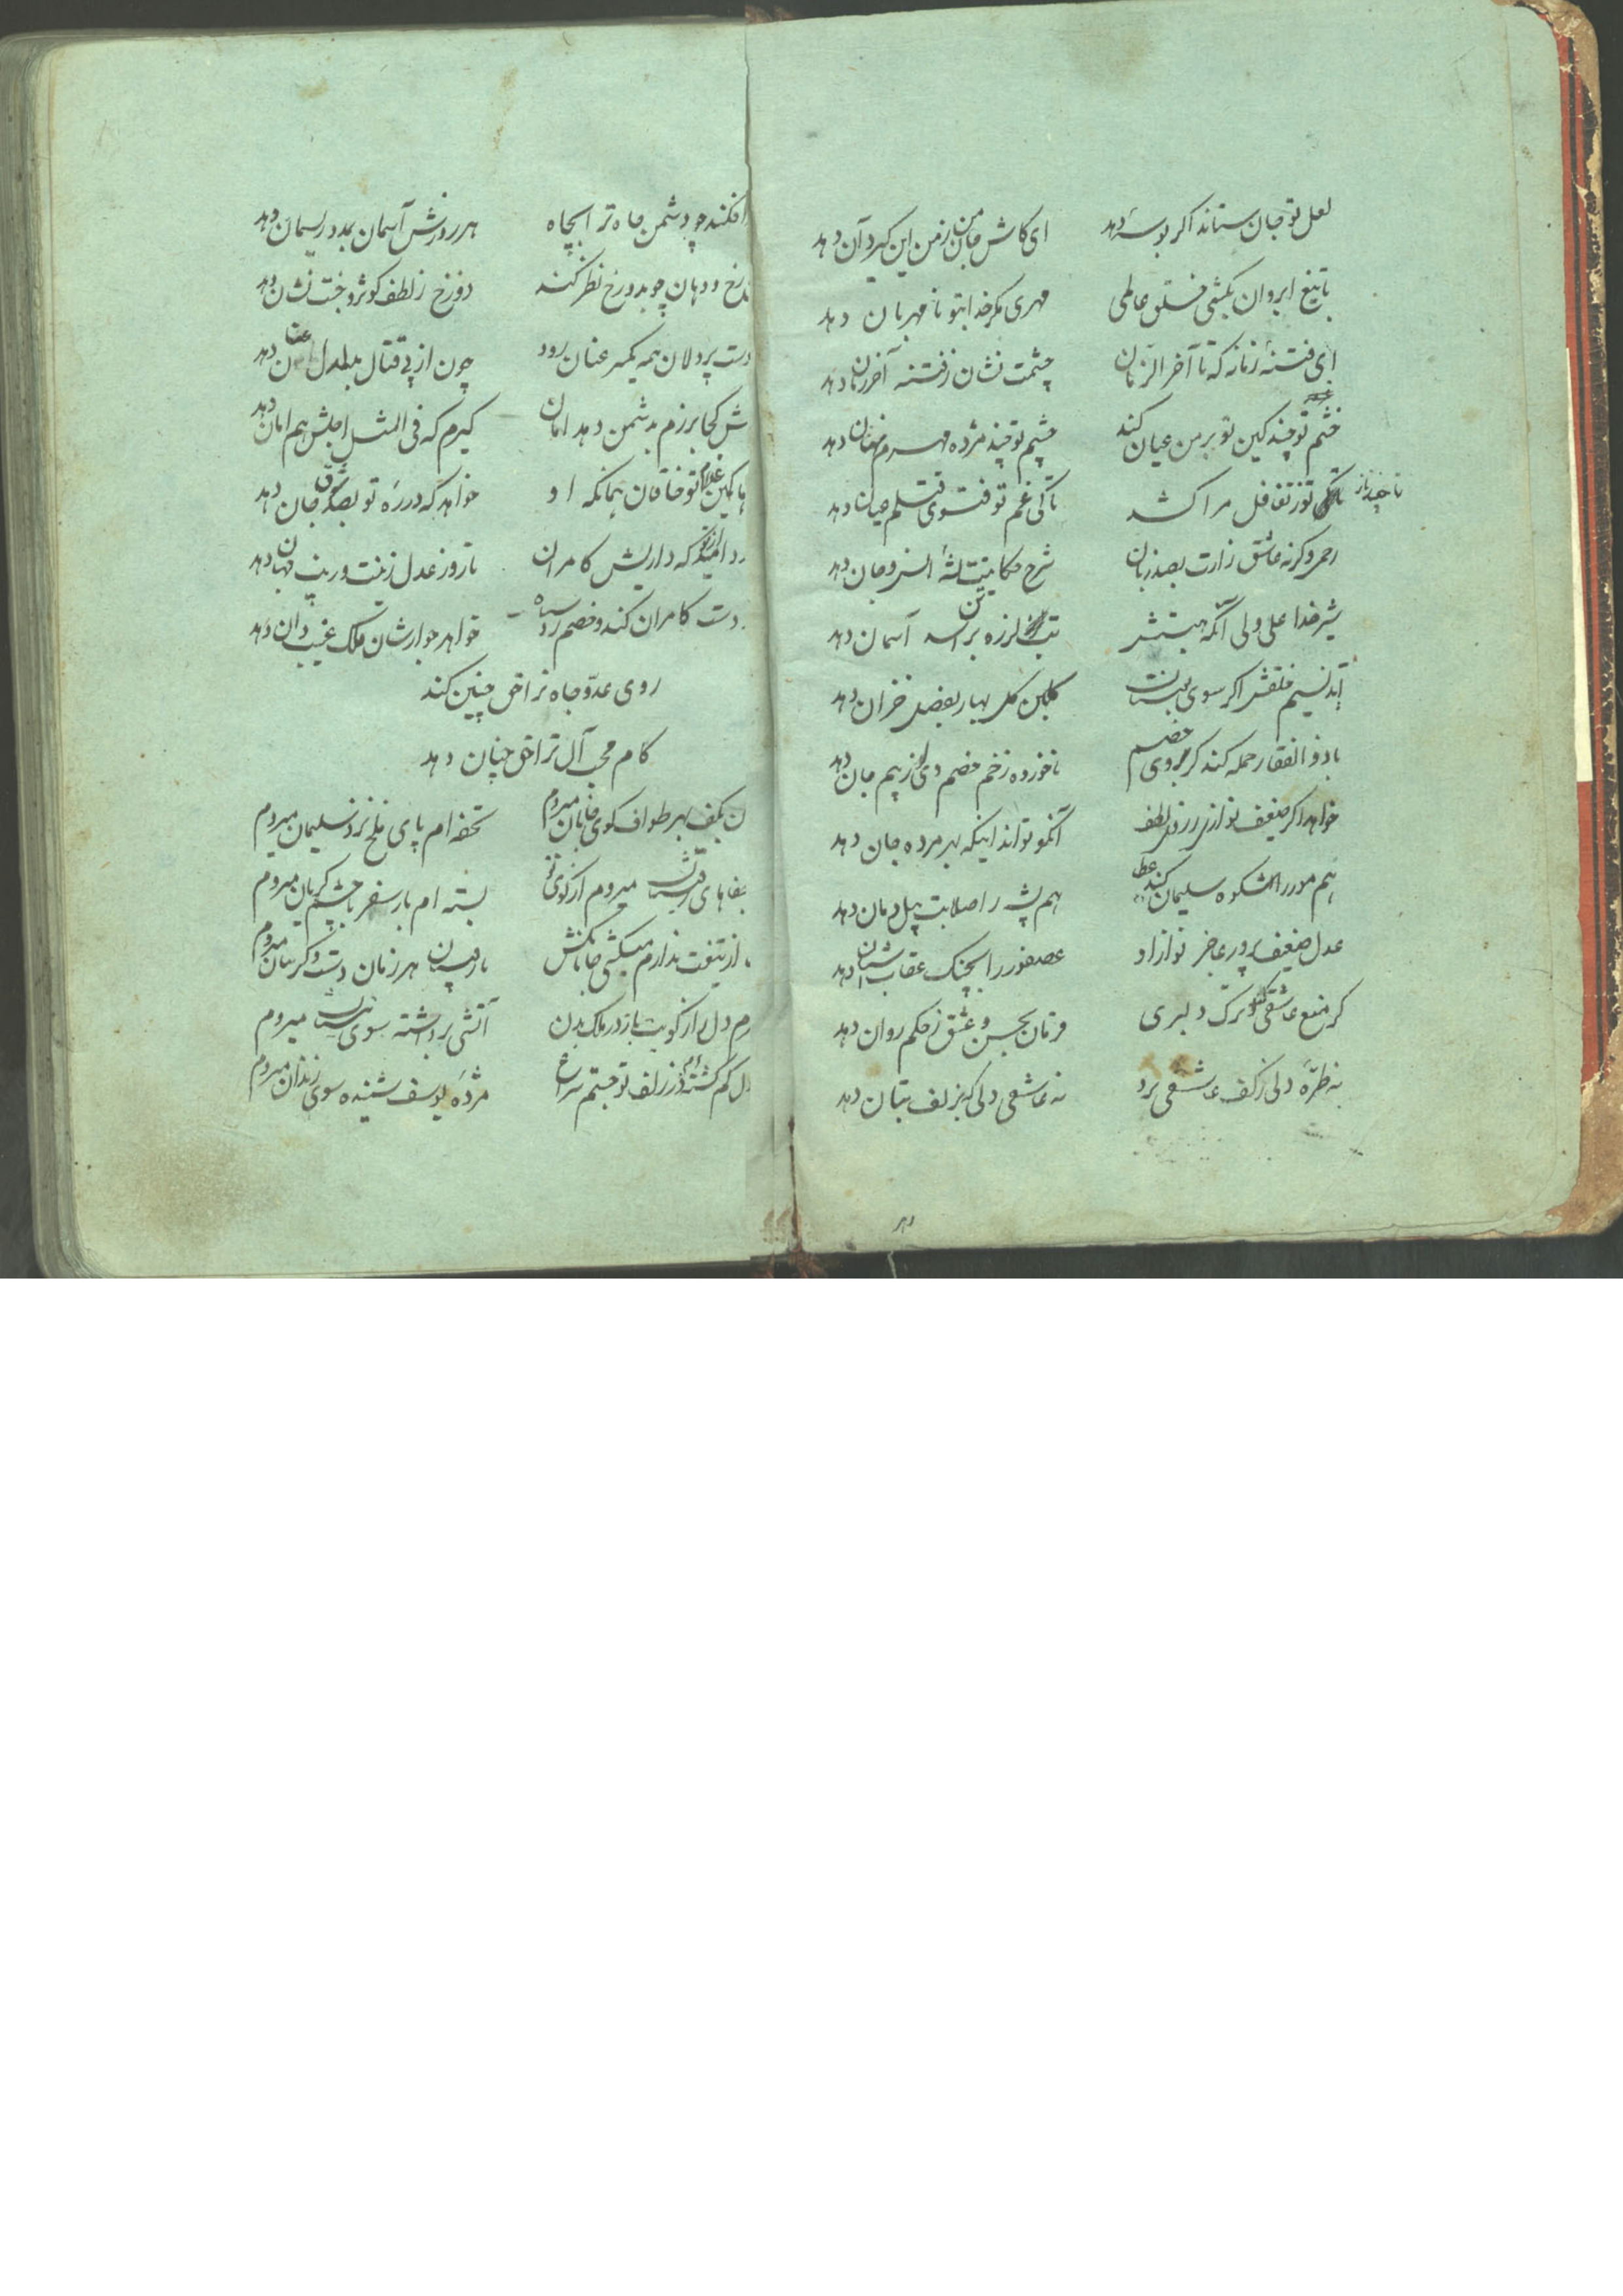 لعل تو جان ستاند اگر بوسه دهد ای کاش جان من زمن این گیرد آن دهد
با تیغ ابروان بکشی خلق عالمی مهری مگر خدا بتو نامهربان دهد
ای فتنهٔ زمانه که تا آخر الزمان چشمت نشان ز فتنه آخر زمان دهد
خشم تو چند کین تو بر من عیان کند چشم تو چند مژده مهرم نهان دهد
تا چند ناز تو ز تغافل مرا کشد تا کی غم تو فتوی قتلم عیان دهد
رحمی وگرنه عاشق زارت بصد زبان شرح حکایتت بشه انس و جان دهد
شیر خدا علی ولی آنکه هیبتش تب لرزه بر تن اسد آسمان دهد
آید نسیم خلقش اگر سوی بوستان گلبن گل بهار بفصل خزان دهد
با ذوالفقار حمله کند گر بروی خصم ناخورده زخم خصم وی از بیم جان دهد
خواهد اگر ضعیف نوازی ز روی لطف آنکو تواند اینکه بهر مرده جان دهد
هم مور را شکوه سلیمان کند عطا هم پشه را صلابت پیل دمان دهد
عدل ضعیف پرور عاجز نواز او عصفور را بچنگ عقاب آشیان دهد
گر منع عاشقی کند و ترک دلبری فرمان بحسن و عشق ز حکم روان دهد
نه طرّه دلی ز کف عاشقی برد نه عاشقی دلی که بزلف بتان دهد
افکند چو دشمن جاه ترا بچاه هر روزش آسمان بمدد ریسمان دهد
رخ و دهان چو بدوزخ نظر کند دوزخ ز لطف کوثر و جنت نشان دهد
دست پردلان همه یکسر عنان رود چون از پی قتال بدلدل عنان دهد
کجا برزم بدشمن دهد امان گیرم که فی المثل اجلش هم امان دهد
کمین غلام تو خاقان بمانکه او خواهد که در ره تو بصد شوق جان دهد
امید که داریش کامران تا روز عدل زینت و زیب جهان دهد
دست کامران کند و خصم رو سیاه خواهد جوارشان ملک غیب دان دهد
روی عدو جاه ترا حق چنین کند
کام محب آل ترا حق چنان دهد
بکف بهر طواف کوی جانان میروم تحفه ام پای ملخ نزد سلیمان میروم
جفاهای رقیبان میروم از کوی تو بسته ام بار سفر با چشم گریان میروم
از تیغت ندارم میکشی جانا بکش با رقیبان هر زمان دست و گریبان میروم
دل را از کویت باز در ملک بدن آتشی برداشته سوی نیستان میروم
دل گم گشته ام در زلف تو جستم سراغ مژده یوسف شنیده سوی زندان میروم